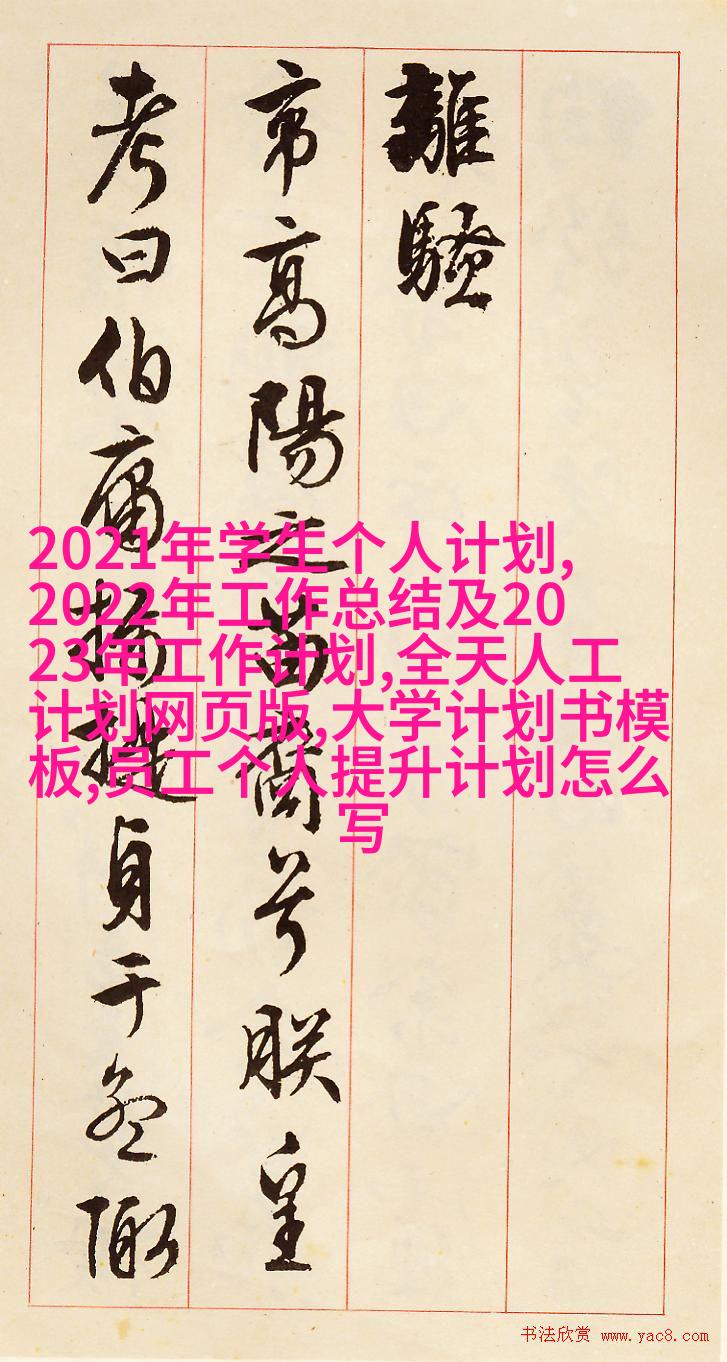 離騷
帝高陽之苗裔兮朕皇
考曰伯庸攝提貞于孟陬
2021年学生个人计划,
2022年工作总结及20
23年工作计划,全天人工
计划网页版,大学计划书模
板,员工个人提升计划怎么
写
书法欣赏 www.yac8.com